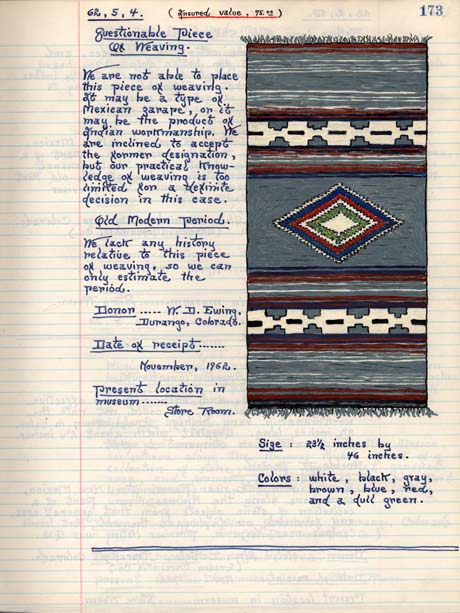 62, 5, 4. (Insured value, 75.00) 173
Questionable Piece
Of Weaving.
We are not able to place
this piece of weaving.
It may be a type of
Mexican zarape, or it
may be the product of
Indian workmanship. We
are inclined to accept
the former designation,
but our practical know-
ledge of weaving is too
limited for a definite
decision in this case.
Old Modern Period.
We lack any history
relative to this piece
of weaving, so we can
only estimate the
period.
Donor ..... W. D. Ewing,
Durango, Colorado.
Date of receipt.......
November, 1962.
Present location in
museum.......
Store Room.
Size : 23½ inches by
46 inches.
Colors : white, black, gray,
brown, blue, red,
and a dull green.